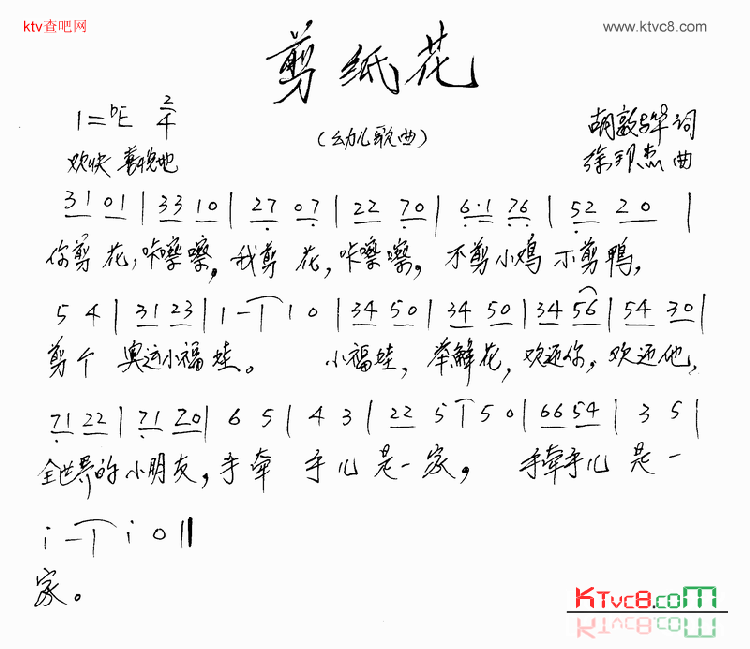 ktv查吧网
www.ktvc8.com
剪纸花
1=♭E 2/4
(幼儿歌曲)
胡敦骅词
欢快 喜悦地
徐邦杰曲
31 01 | 33 10 | 27 07 | 22 70 | 6·1 76 | 52 20 |
你剪花,咔嚓嚓。我剪花,咔嚓嚓。不剪小鸡不剪鸭,
5 4 | 31 23 | 1 - | 1 0 | 34 50 | 34 50 | 34 56 | 54 30 |
剪个奥运小福娃。 小福娃,举鲜花,欢迎你,欢迎他,
71 22 | 71 20 | 6 5 | 4 3 | 22 5 | 5 0 | 66 54 | 3 5 |
全世界的小朋友,手牵手儿是一家, 手牵手儿是一
i - | i 0 ‖
家。
KTvc8.com